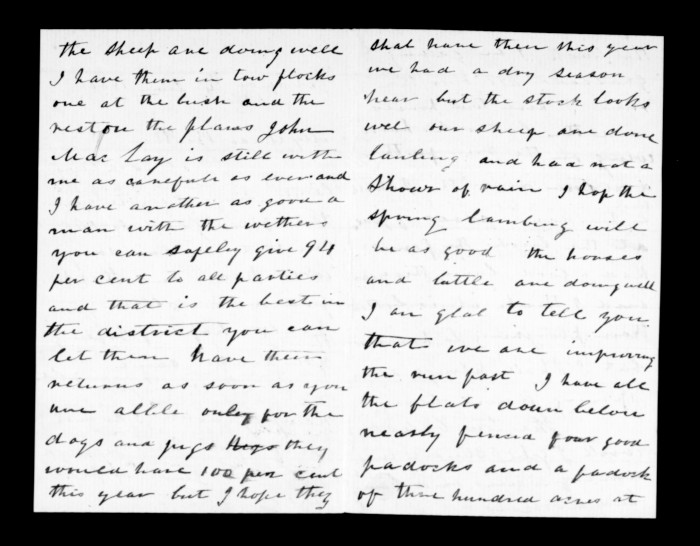 the sheep are doing well
I have them in tow flocks
one at the bush and the
rest on the plaws John
Mac Lay is still with
me as carefull as ever and
I have another as good a
man with the wethers
you can safeley give 94
per cent to all parties
and that is the best in
the district you can
let them have their
returns as soon as you
are allble only for the
dogs and pigs they
would have 100 per cent
this year but I hope they
shal have then this year
we had a dry season
hear but the stock looks
wel our sheep are done
lambing and had not a
Shower of rain I hop the
spring lambing will
be as good the horses
and cattle are doing well
I am glad to tell you
that we are improving
the run fast I have all
the flats down below
nearly fensed four good
padocks and a padock
of thre hundred acres at